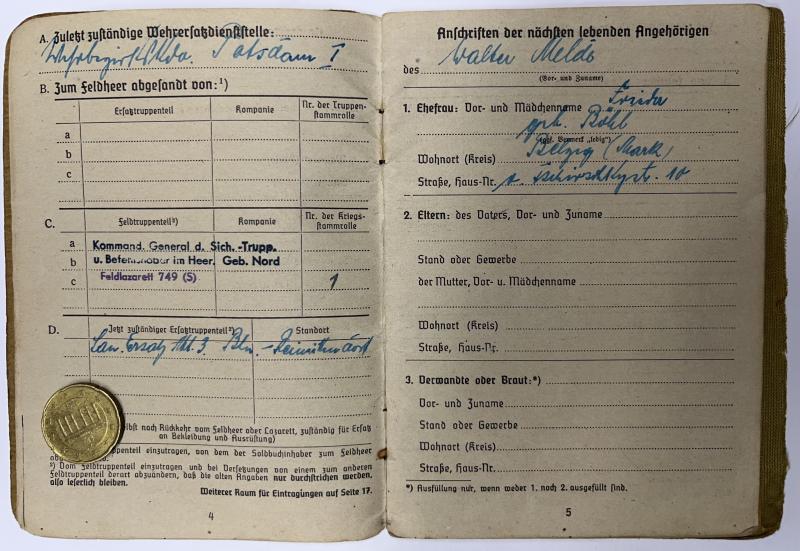 A. Zuletzt zuständige Wehrersatzdienststelle:
Wehrbezirkskdo. Potsdam I
B. Zum Feldheer abgesandt von:¹)
Ersatztruppenteil Kompanie Nr. der Truppen-
stammrolle
a
b
c
C. Feldtruppenteil²) Kompanie Nr. der Kriegs-
stammrolle
a Kommand. General d. Sich.-Trupp.
b u. Befehlshaber im Heer. Geb. Nord
c Feldlazarett 749 (S) 1
D. Jetzt zuständiger Ersatztruppenteil²) Standort
San. Ersatz Abt. 3 Bln.-
selbst nach Rückkehr vom Feldheer oder Lazarett, zuständig für Ersatz
an Bekleidung und Ausrüstung)
truppenteil einzutragen, von dem der Soldbuchinhaber zum Feldheer
²) Dem Feldtruppenteil einzutragen und bei Versetzungen von einem zum anderen
Feldtruppenteil derart abzuändern, daß die alten Angaben nur durchstrichen werden,
also leserlich bleiben.
Weiterer Raum für Eintragungen auf Seite 17.
4
Anschriften der nächsten lebenden Angehörigen
des Walter Melde
(Vor- und Zuname)
1. Ehefrau: Vor- und Mädchenname Frieda
geb. Böhl
(ggf. Vermerk „ledig")
Wohnort (Kreis) Belzig (Mark)
Straße, Haus-Nr. v. Tschirschkystr. 10
2. Eltern: des Vaters, Vor- und Zuname
Stand oder Gewerbe
der Mutter, Vor- u. Mädchenname
Wohnort (Kreis)
Straße, Haus-Nr.
3. Verwandte oder Braut:*)
Vor- und Zuname
Stand oder Gewerbe
Wohnort (Kreis)
Straße, Haus-Nr.
*) Ausfüllung nur, wenn weder 1. noch 2. ausgefüllt sind.
5